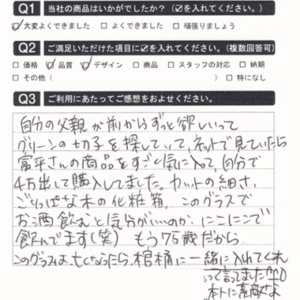 Q1 当社の商品はいかがでしたか？（☑を入れてください。）
☑大変よくできました □よくできました □頑張りましょう
Q2 ご満足いただけた項目に☑を入れてください。（複数回答可）
□価格 ☑品質 ☑デザイン □商品 □スタッフの対応 □納期
□その他（ ） □特になし
Q3 ご利用にあたってご感想をおよせください。
自分の父親が前からずっと欲しいって
グリーンの切子を探していて、ネットで見ていたら
富平さんの商品をすごく気に入って、自分で
4万出して購入してました。カットの細さ、
ごくらばな木の化粧箱、このグラスで
お酒飲むと気分がいいのか、にこにこで
飲んでます(笑) もう75歳だから
このグラスは亡くなったら、棺桶に一緒に入れてくれ
って言ってました
本トに素敵な